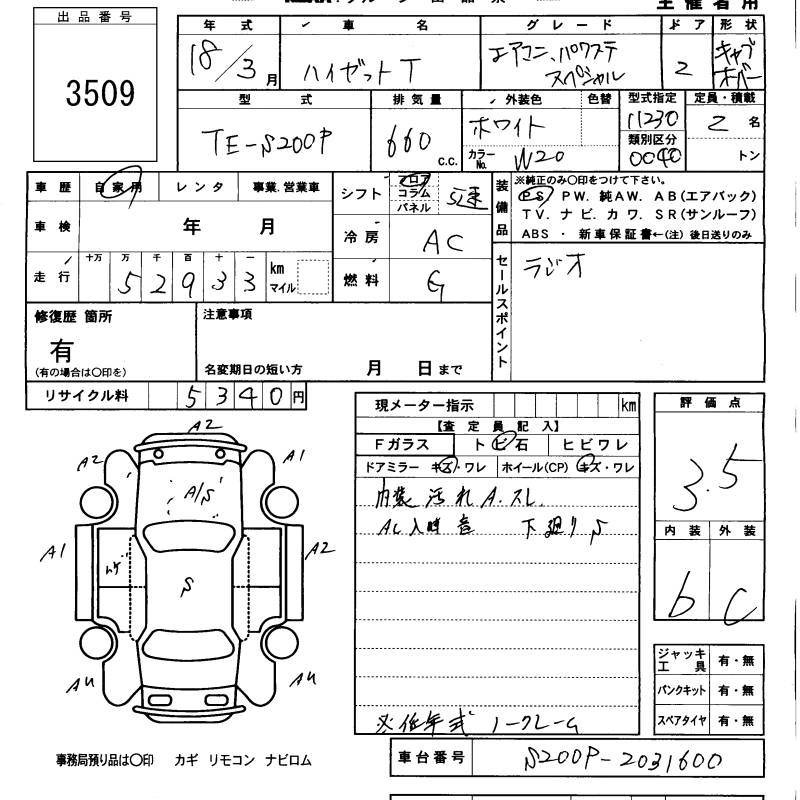 主催者用
出品番号
3509
年式 車名 グレード ドア 形状
18/3月 ハイゼットT エアコン、パワステ スペシャル 2 キャブオーバー
型式 排気量 外装色 色替 型式指定 定員・積載
TE-S200P 660 c.c. ホワイト 11230 2名
カラーNo. W20 類別区分 0040 トン
車歴 自家用 レンタ 事業.営業車
シフト フロア コラム パネル 5速
装備品
※純正のみ〇印をつけて下さい。
PS PW. 純AW. AB(エアバック)
TV. ナビ. カワ. SR(サンルーフ)
ABS ・ 新車保証書←(注) 後日送りのみ
車検 年 月
冷房 AC
走行 十万 万 千 百 十 一
52933 km マイル
燃料 G
セールスポイント
ラジオ
修復歴 箇所
有
(有の場合は〇印を)
注意事項
名変期日の短い方 月 日まで
リサイクル料 5340円
現メーター指示 km
【査定員記入】
Fガラス トビ石 ヒビワレ
ドアミラー キズ・ワレ ホイール(CP) キズ・ワレ
内装 汚れ A.スレ
AC入時 音 下廻り S
※低年式 ノークレーム
評価点
3.5
内装 外装
b C
ジャッキ工具 有・無
パンクキット 有・無
スペアタイヤ 有・無
A2
A2 A1
A/S
A1 A2
S
A4 A4
事務局預り品は〇印 カギ リモコン ナビロム
車台番号 S200P-2031600